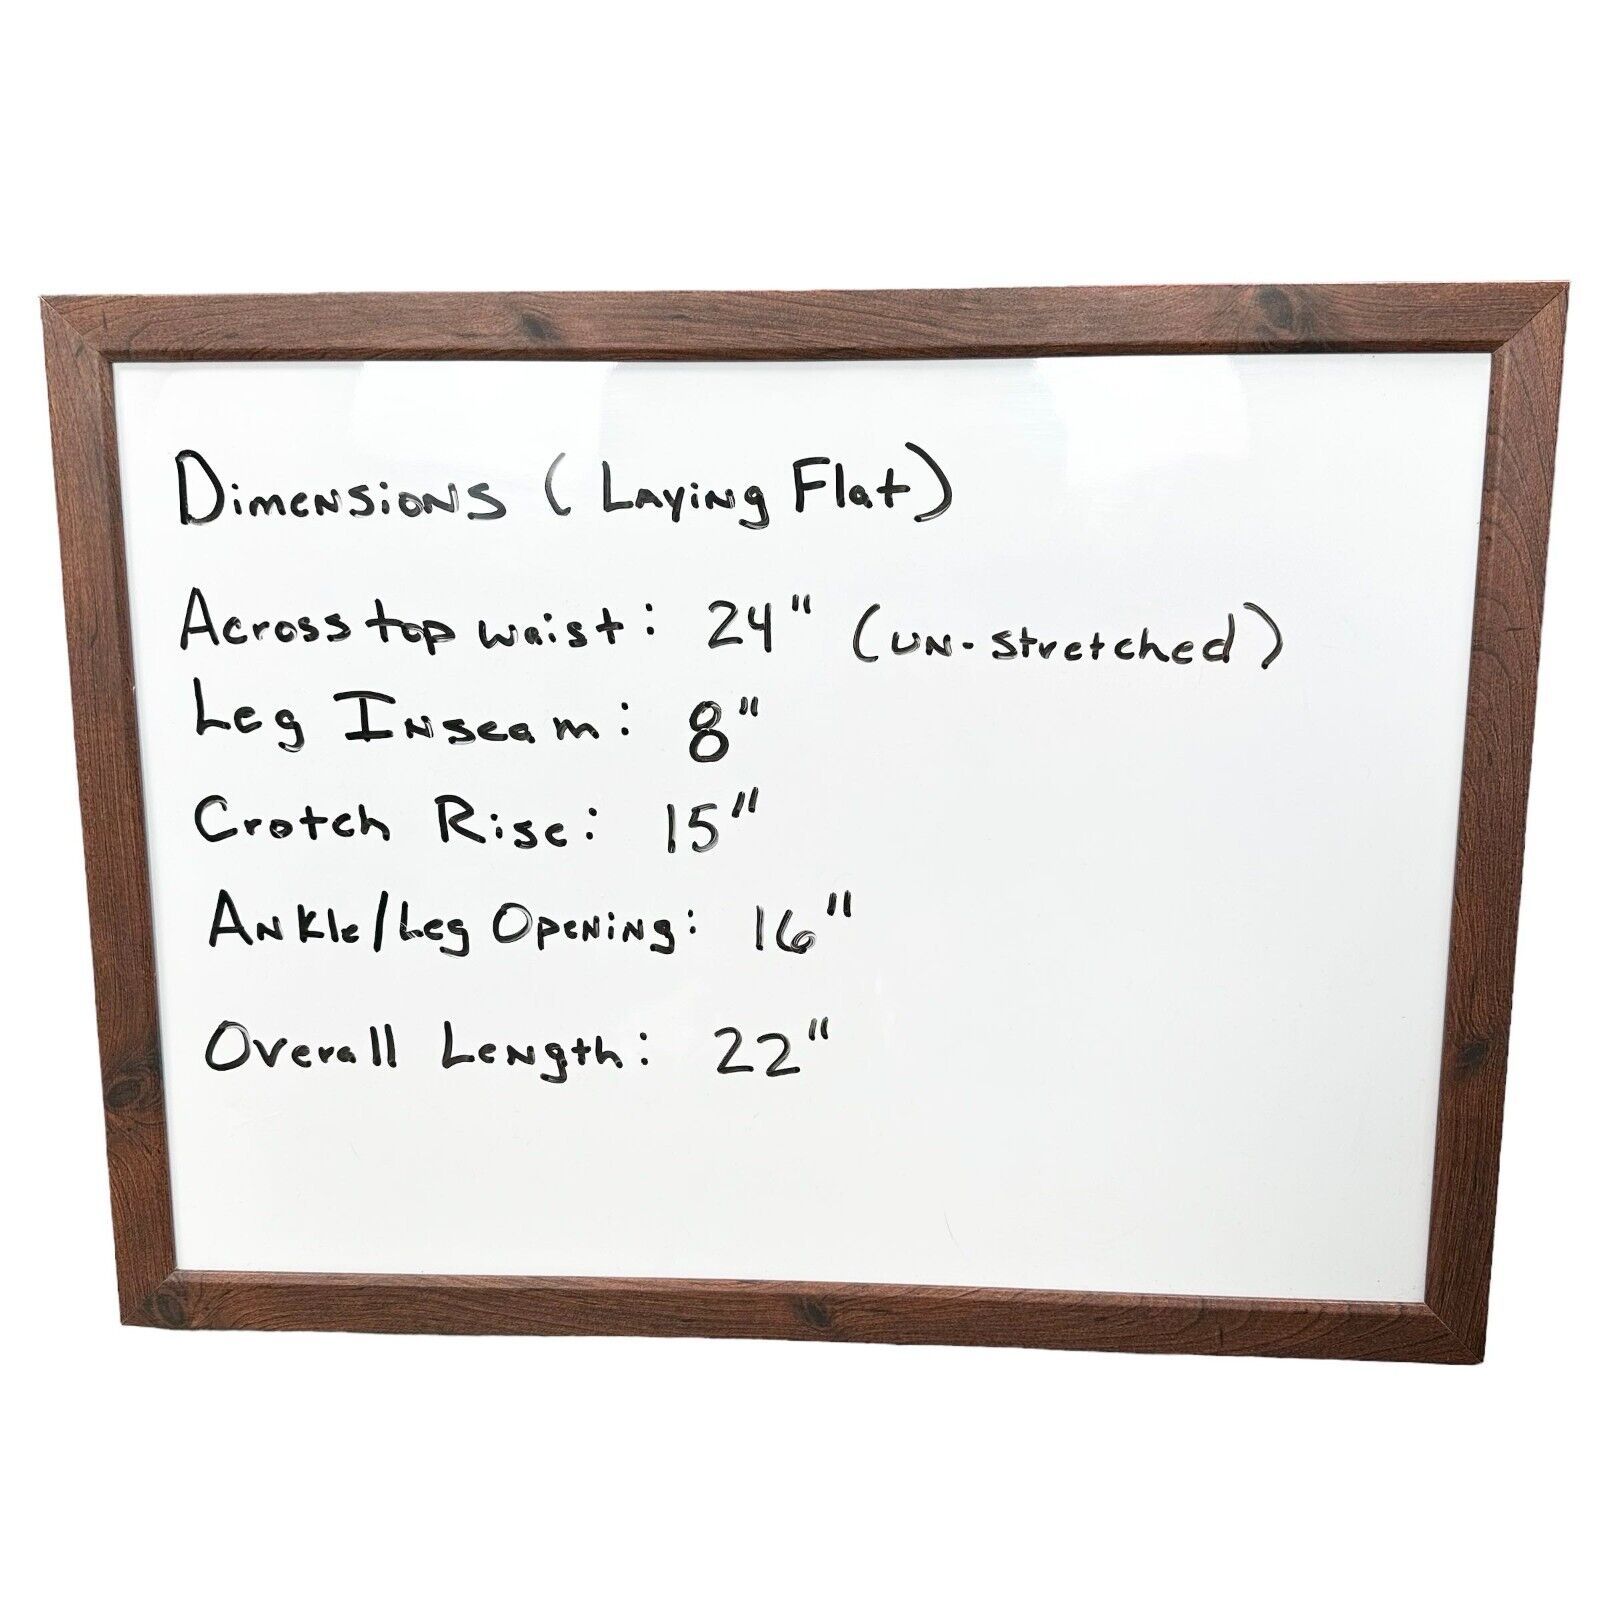 Dimensions (Laying Flat)
Across top waist: 24" (un-stretched)
Leg Inseam: 8"
Crotch Rise: 15"
Ankle/Leg Opening: 16"
Overall Length: 22"